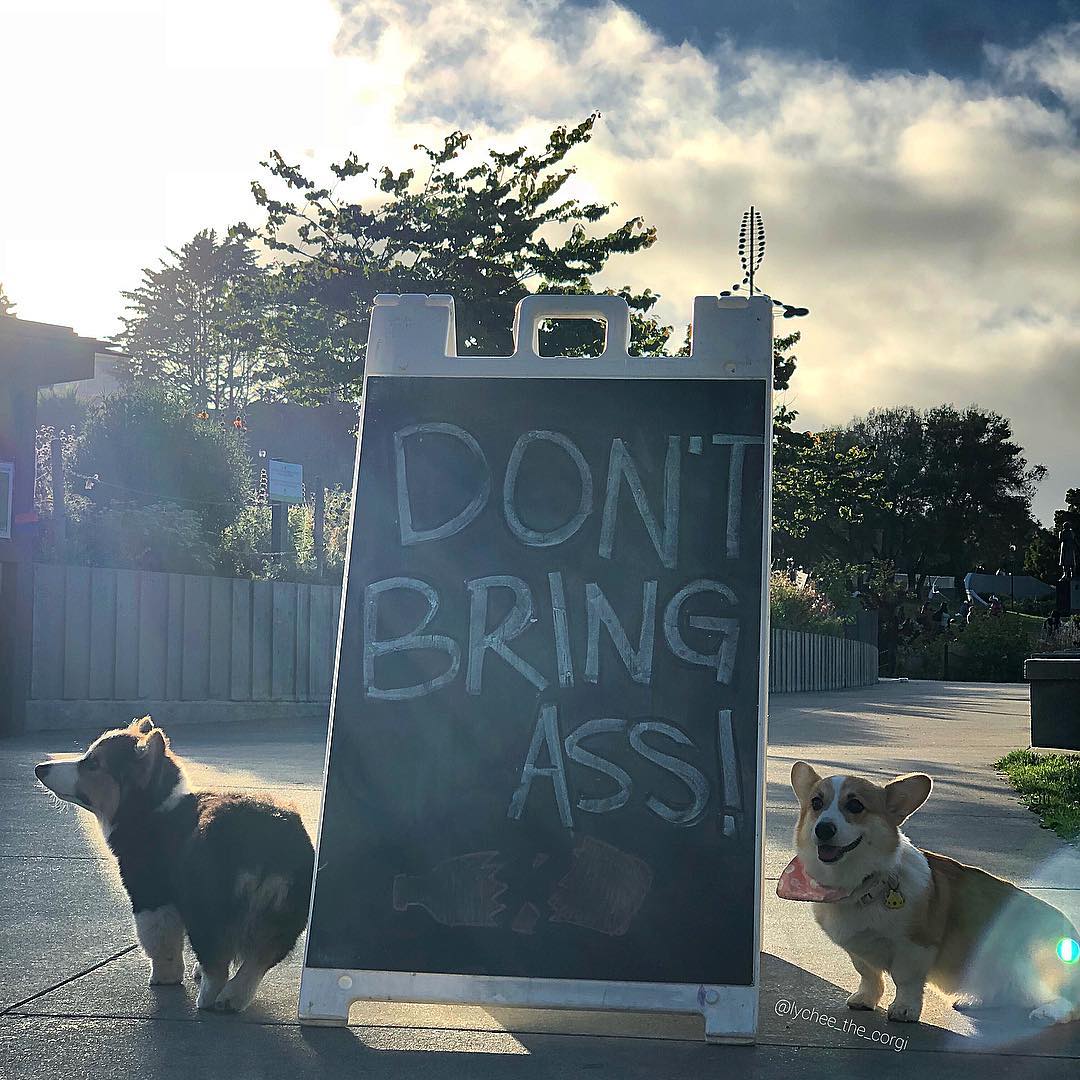 DON'T
BRING
ASS!
@lychee_the_corgi